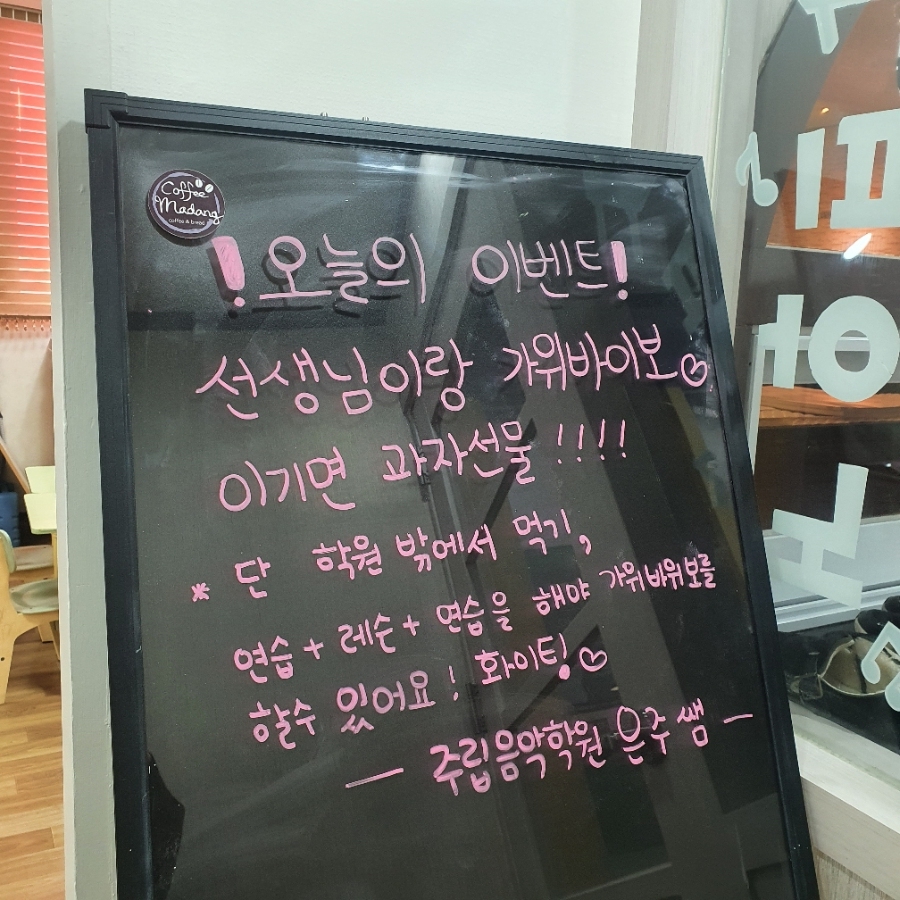 Coffee
Madang
!오늘의 이벤트!
선생님이랑 가위바이보♡
이기면 과자선물!!!!
* 단 학원 밖에서 먹기,
연습+레슨+연습을 해야 가위바위보를
할수 있어요! 화이팅♡
— 주립음악학원 은주쌤 —
피
아
노